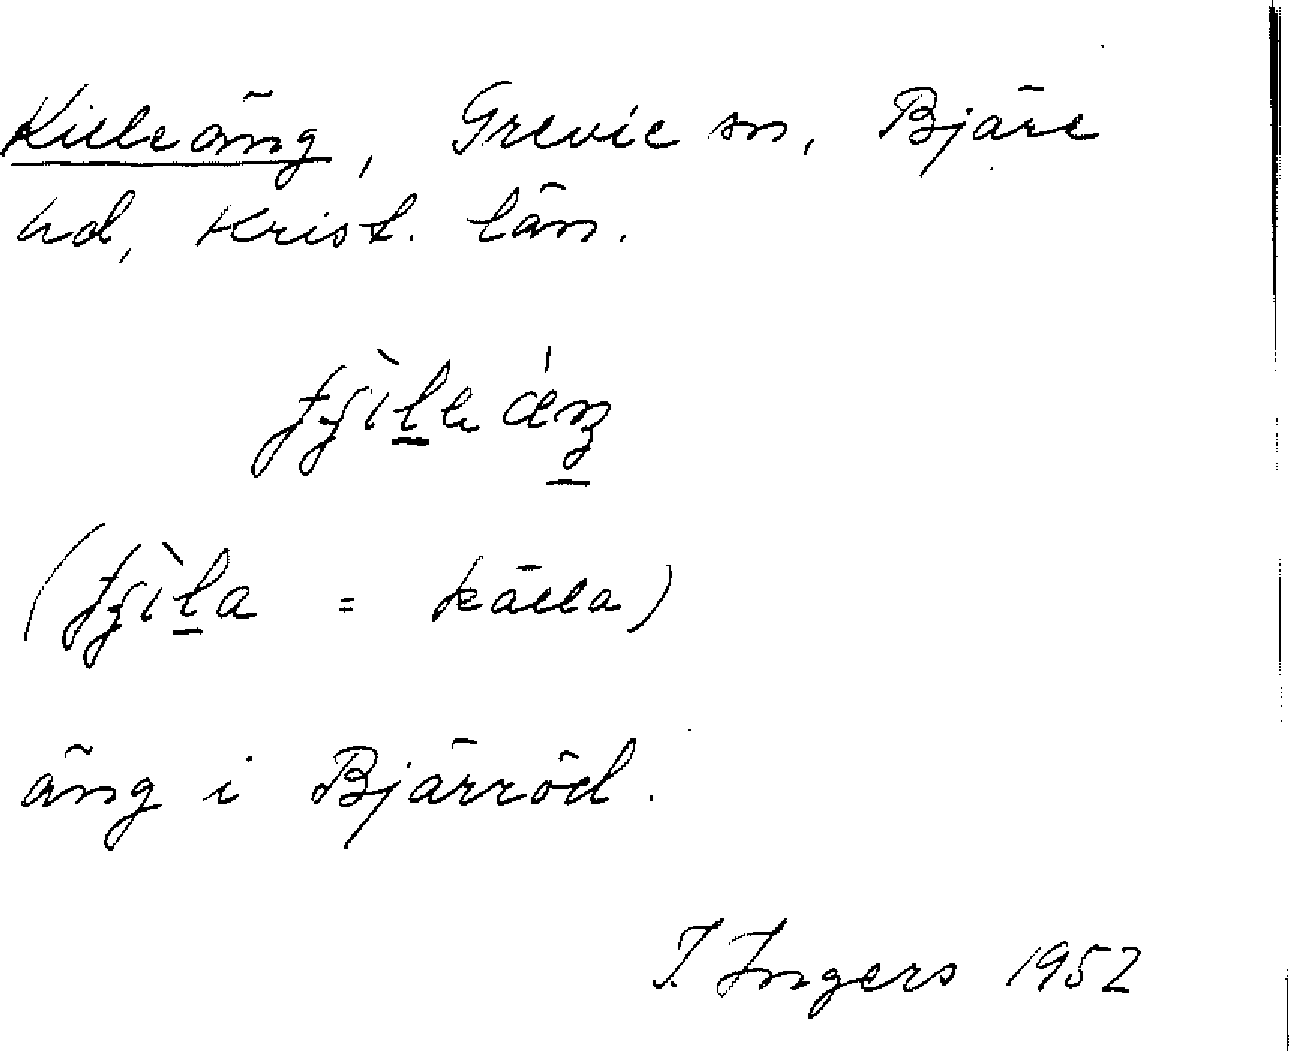 Killeäng, Grevie sn, Bjäre
hd, Krist. län.
(                = källa)
äng i Bjärröd.
I. Ingers 1952